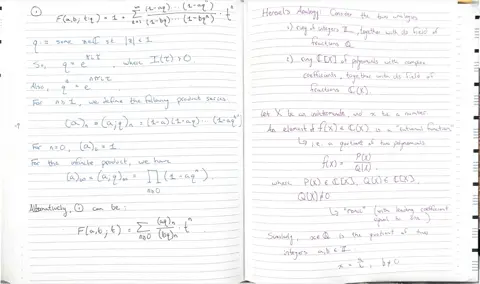 ①
F(a,b;t:q) = 1 + Σ_{n=1}^{∞} (1-aq) ··· (1-aq^n) / (1-bq) ··· (1-bq^n) · t^n
q = some x∈ℂ st |x| < 1
So, q = e^{πiτ}, where I(τ) > 0.
Also, q^n = e^{nπiτ}
For n ≥ 1, we define the following product series
(a)_n = (a;q)_n = (1-a)(1-aq) ··· (1-aq^n)
For n=0, (a)_n = 1
For the infinite product, we have
(a)_∞ = (a;q)_∞ = ∏_{n≥0} (1-aq^n).
Alternatively, ① can be:
F(a,b;t) = Σ_{n≥0} (aq)_n / (bq)_n · t^n
Hensel's Analogy: Consider the two analogies
1) ring of integers ℤ, together with its field of
fractions ℚ
2) ring ℂ[X] of polynomials with complex
coefficients, together with its field of
fractions ℂ(X).
Let X be an indeterminate, and x be a number.
An element of f(x) ∈ ℂ(X) is a "rational function"
↳ i.e, a quotient of two polynomials
f(X) = P(X) / Q(X),
where P(X) ∈ ℂ[X], Q(X) ∈ ℂ[X],
Q(X) ≠ 0
↳ (with leading coefficient
equal to one)
Similarly, x∈ℚ is the quotient of two
integers a,b ∈ ℤ
x = a/b, b≠0